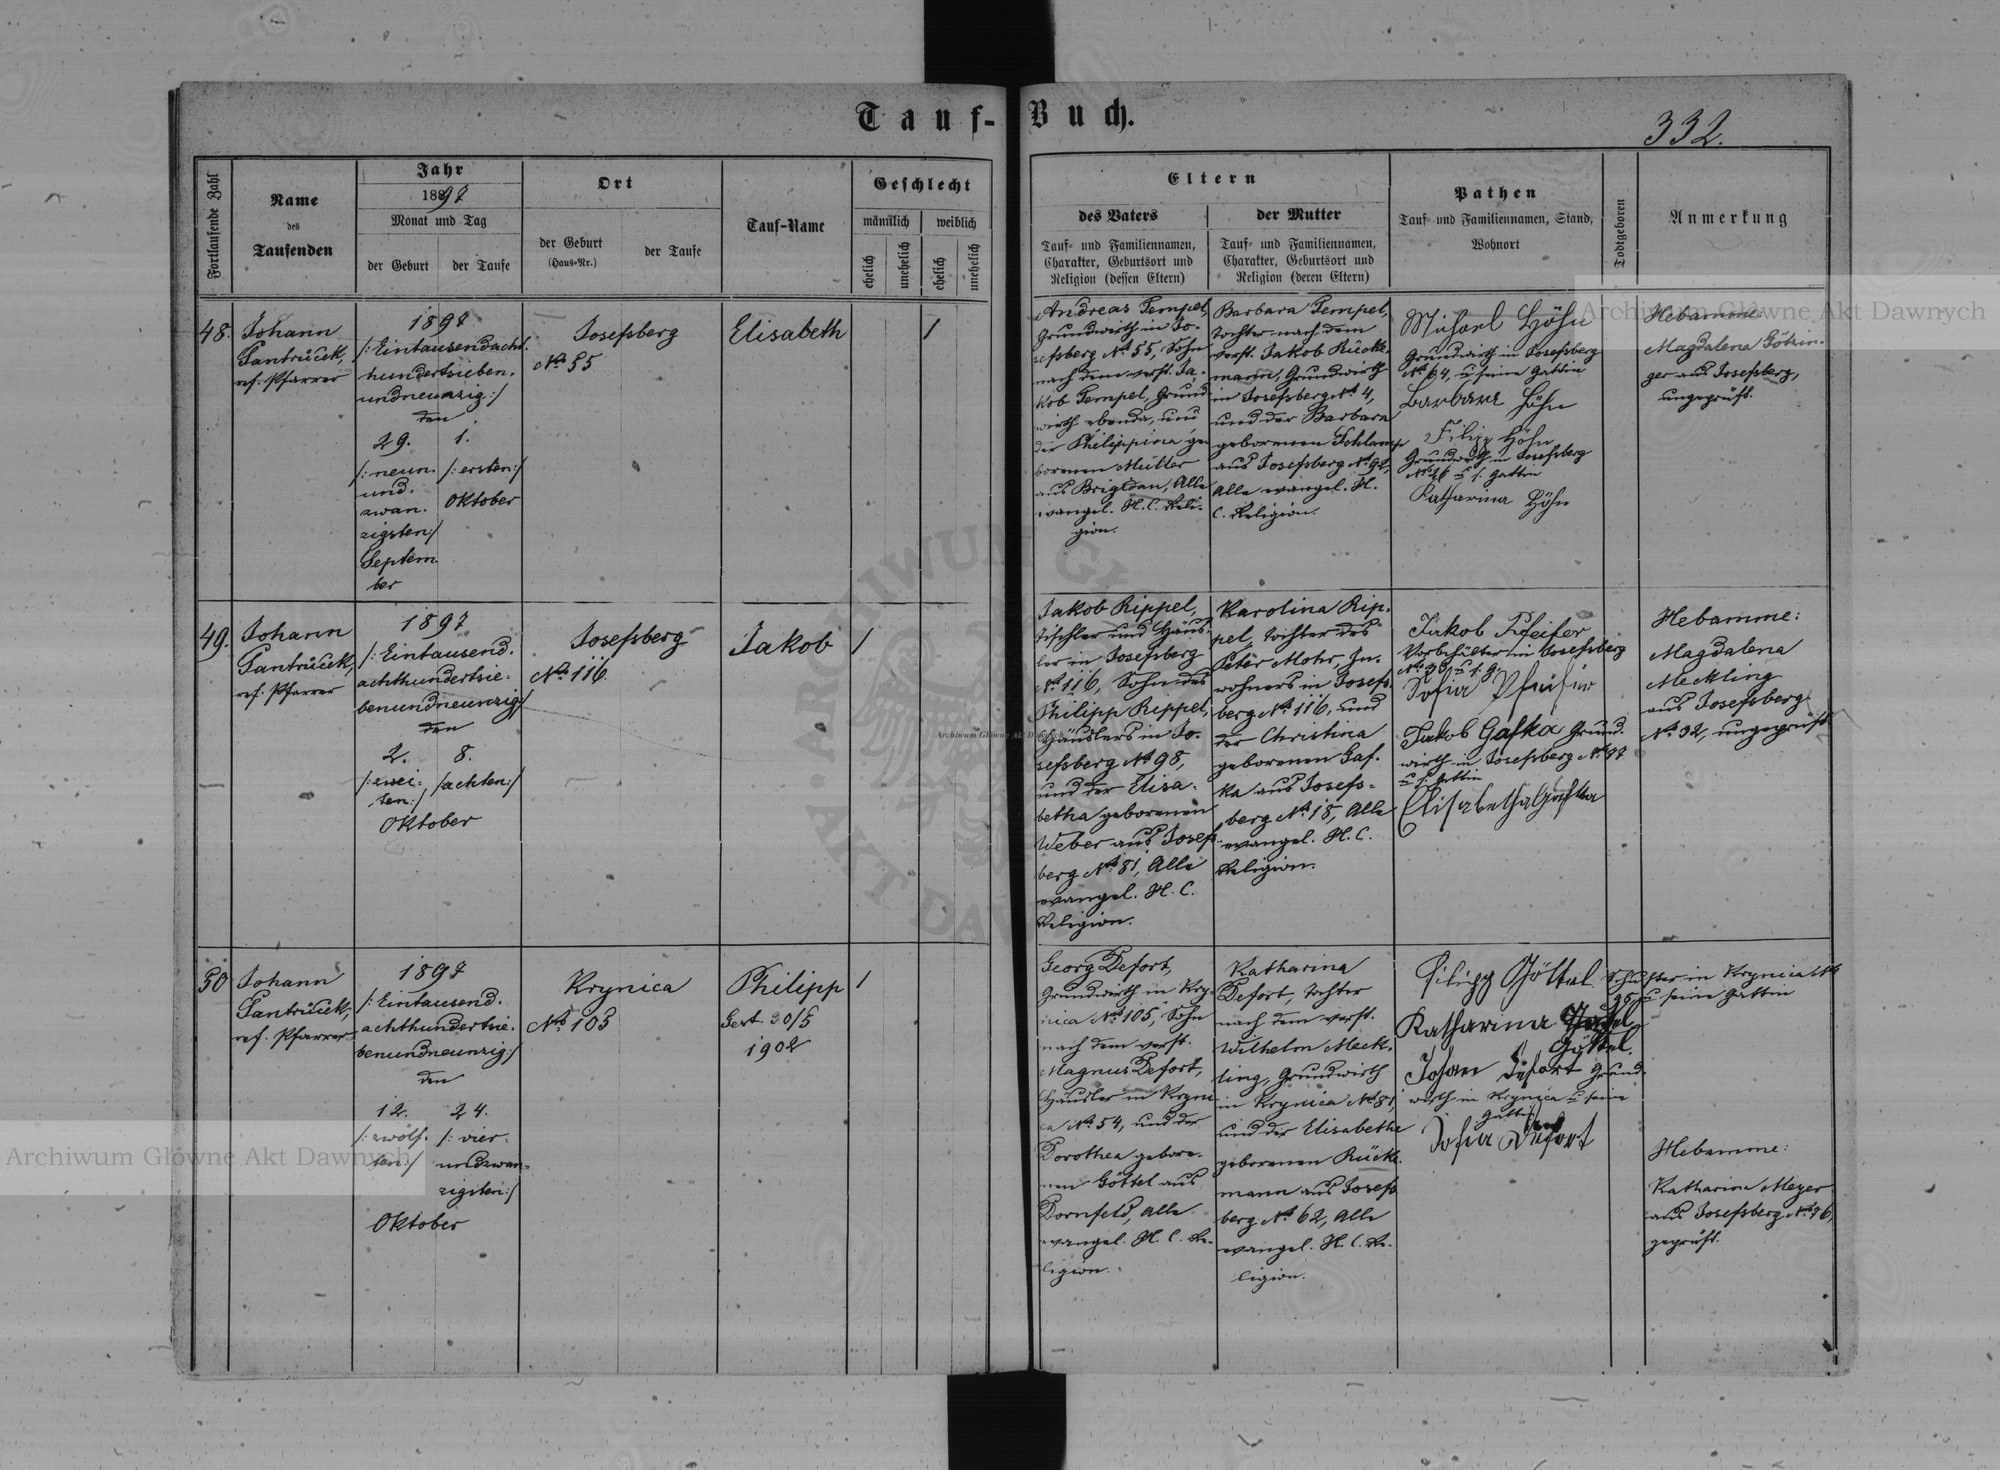 Tauf-Buch.
332.
Fortlaufende Zahl
Name
des
Taufenden
Jahr
1897
Monat und Tag
der Geburt
der Taufe
Ort
der Geburt
(Haus-Nr.)
der Taufe
Tauf-Name
Geschlecht
männlich
weiblich
ehelich
unehelich
ehelich
unehelich
Eltern
des Vaters
Tauf- und Familiennamen,
Charakter, Geburtsort und
Religion (dessen Eltern)
der Mutter
Tauf- und Familiennamen,
Charakter, Geburtsort und
Religion (deren Eltern)
Pathen
Tauf- und Familiennamen, Stand,
Wohnort
Todtgeboren
Anmerkung
48.
Johann
Pantrůček,
ref. Pfarrer
1897
/: Eintausendacht.
hundertsieben.
undneunzig :/
den
29.
/: neun.
und.
zwan.
zigsten :/
Septem.
ber
1.
/: ersten :/
Oktober
Josefsberg
No 55
Elisabeth
1
Andreas Tempel,
Grundwirth in Jo-
sefsberg No 55, Sohn
nach dem verst. Ja-
kob Tempel, Grund
wirth ebenda, und
der Philippina ge-
borenen Müller
aus Brigidau, Alle
evangel. H. C. Reli-
gion.
Barbara Tempel,
Tochter nach dem
verst. Jakob Rücke-
mann, Grundwirth
in Josefsberg No 4,
und der Barbara
geborenen Schlamp
aus Josefsberg No 92,
Alle evangel. H.
C. Religion.
Michael Höhn
Grundwirth in Josefsberg
No 64, u seine Gattin
Barbara Höhn
Filipp Höhn
Grundwirth in Josefsberg
No 26 u s. Gattin
Katharina Höhn
Hebamme:
Magdalena Götzin-
ger aus Josefsberg,
ungeprüft.
49.
Johann
Pantrůček,
ref. Pfarrer
1897
/: Eintausend.
achthundertsie-
benundneunzig :/
den
2.
/: zwei-
ten :/
8.
/achten :/
Oktober
Josefsberg
No 116.
Jakob
1
Jakob Rippel,
Tischler und Häus-
ler in Josefsberg
No 116, Sohn des
Philipp Rippel,
Häuslers in Jo-
sefsberg No 98,
und der Elisa-
betha geborenen
Weber aus Josefs-
berg No 81, Alle
evangel. H. C.
Religion.
Karolina Rip-
pel, Tochter des
Peter Mohr, In-
wohners in Josefs-
berg No 116, und
der Christina
geborenen Gaf-
ka aus Josefs-
berg No 18, Alle
evangel. H. C.
Religion.
Jakob Pfeifer
in Josefsberg
No 33 u s. g.
Sofia Pfeifer
Jakob Gafka Grund-
wirth in Josefsberg No 97
u s. Gattin
Elisabetha Gafka
Hebamme:
Magdalena
Meckling
aus Josefsberg
No 32, ungeprüft
50
Johann
Pantrůček,
ref. Pfarrer
1897
/: Eintausend.
achthundertsie-
benundneunzig :/
den
12.
/: zwölf-
ten :/
24.
/: vier-
undzwan-
zigsten :/
Oktober
Krynica
No 105
Philipp
Gest. 30/5
1902
1
Georg Defort,
Grundwirth in Kry-
nica No 105, Sohn
nach dem verst.
Magnus Defort,
Häusler in Kryni
ca No 54, und der
Dorothea gebore-
nen Göttel aus
Dornfeld, Alle
evangel. H. C. Re-
ligion.
Katharina
Defort, Tochter
nach dem verst.
Wilhelm Meck-
ling, Grundwirth
in Krynica No 81,
und der Elisabetha
geborenen Rücke-
mann aus Josefs
berg No 62, Alle
evangel. H. C. Re-
ligion.
Filipp Göttel Schuster in Krynica
u seine Gattin
Katharina
Göttel.
Johan Defort Grund-
wirth in Krynica u seine
Gattin
Sofia Defort
Hebamme:
Katharina Meyer
aus Josefsberg No 76,
geprüft.
Archiwum Główne Akt Dawnych
Archiwum Główne Akt Dawnych
Archiwum Główne Akt Dawnych
ARCHIWUM GŁ
AKT DAW